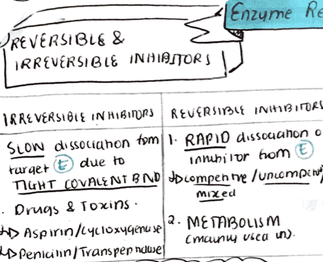 Enzyme Re
REVERSIBLE &
IRREVERSIBLE INHIBITORS
IRREVERSIBLE INHIBITORS
REVERSIBLE INHIBITORS
SLOW dissociation from
target E due to
TIGHT COVALENT BOND
. Drugs & Toxins.
↳ Aspirin/cyclooxygenase
↳ Penicilin/Transpeptidase
1. RAPID dissociation o
inhibitor from E
↳ competitive/uncompetiti
mixed
2. METABOLISM
(mainly used in).